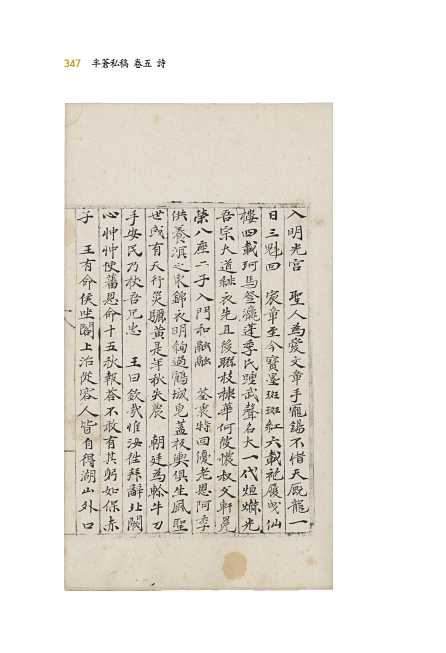 347 半蒼私稿 卷五 詩
入明光宮 聖人為愛文章手寵錫不惜天厩龍一
日三 回 宸章至今寶墨斑斑紅六載 履 仙
樓四載珂馬登瀛蓬季氏踵武聲名大一代烜爀光
吾宗大道緋衣先且後聯枝棣華何彼 叔父軒冕
榮八座二子入門和融融 荃衷特回優老恩阿季
供養 之東錦衣明 過 城皂蓋板輿俱生風聖
世或有天行災 黃是年秋失農 朝廷為 牛刀
手安民乃杖吾兄忠 王曰欽哉惟汝往拜辭北闕
心忡忡使蕃恩命十五秋報答不敢有其躬如保赤
子 王有命俟坐閣上治從容人皆自得湖山外口